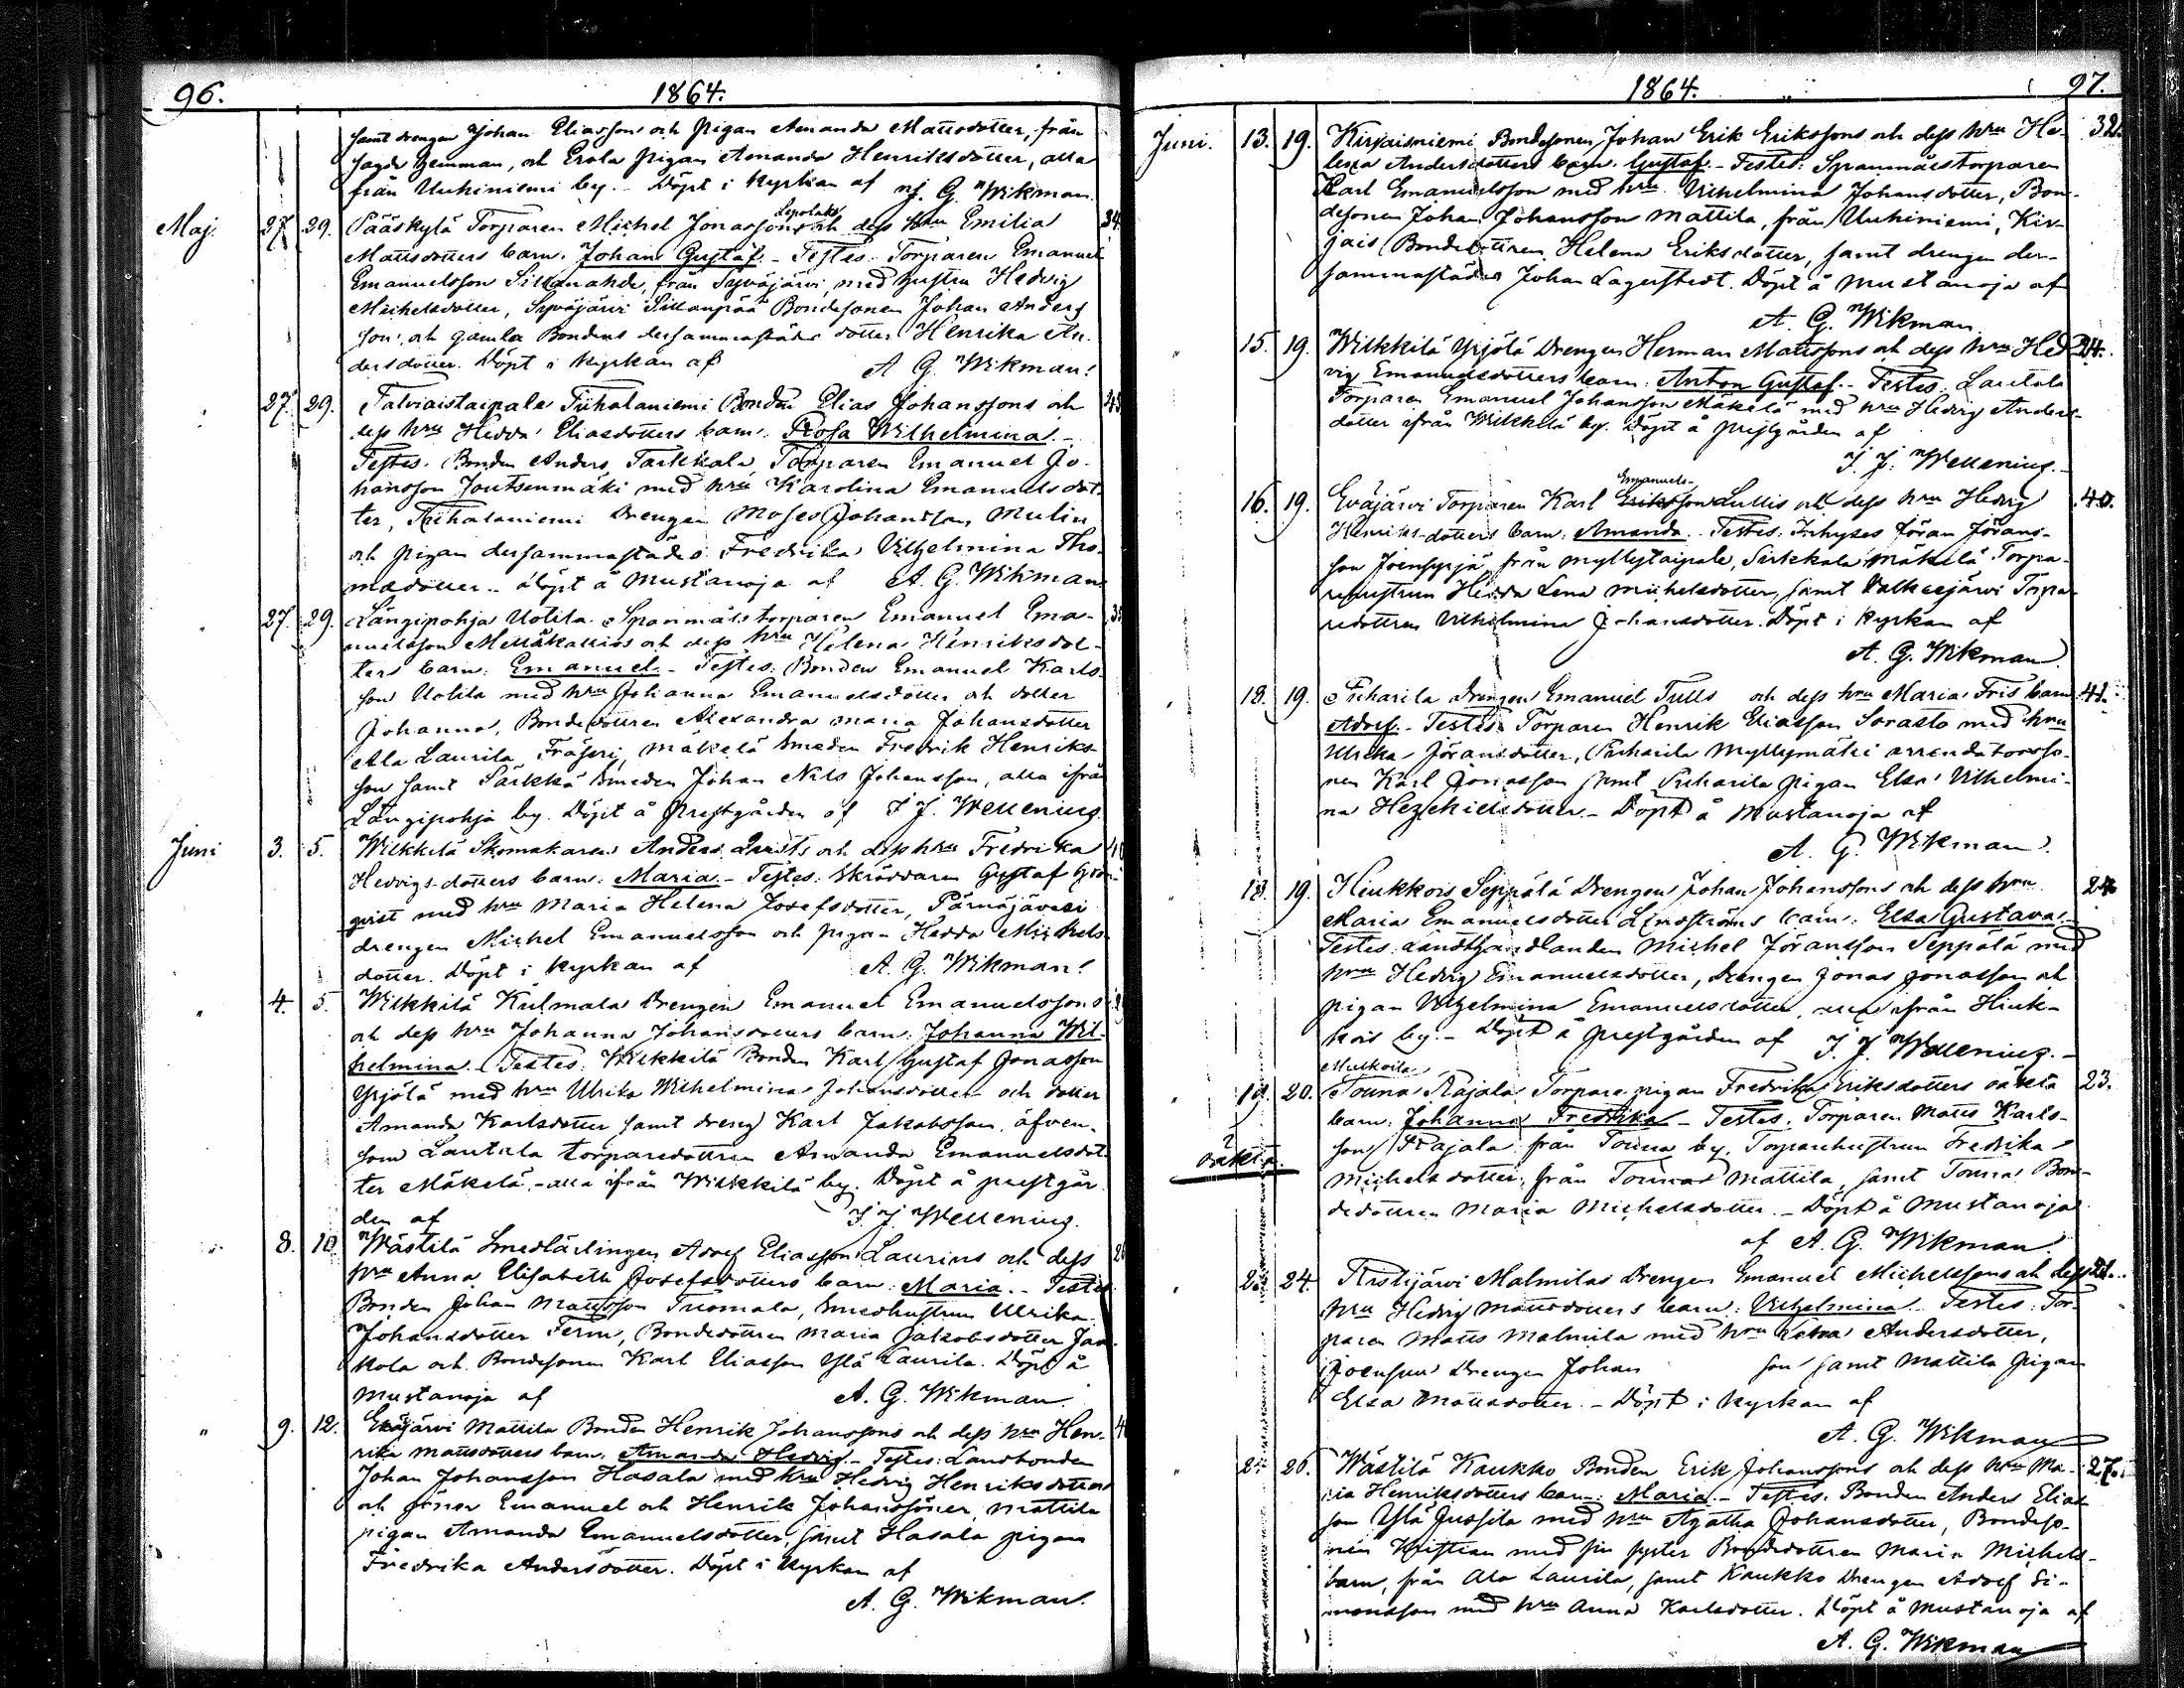 96.
1864.
samt drengen Johan Eliassons och pigan Amanda Mattsdotter, från
sagde hemman, och Erola pigan Amanda Henriksdotter, alla
från Uuhiniemi by. - Döpt i Kyrkan af A. G. Wikman.
Maj. 27. 29. Pääskylä Torparen Michel Jonassons Lepolaks och dess hru Emilia 34.
Mattsdotters barn. Johan Gustaf. - Testes. Torparen Emanuel
Emanuelsson från Syväjärvi, med hustru Hedvig
Michelsdotter, Syväjärvi Sillanpää Bondesonen Johan Anders
son, och gamla Bondens dersammastädes dotter Henrika An-
dersdotter. Döpt i Kyrkan af A. G. Wikman.
27. 29. Talviaistaipale Tiihalaniemi Bonden Elias Johanssons och
dess hru Hedda Eliasdotters barn. Rosa Wilhelmina. -
Testes. Bonden Anders Tarkkala, Torparen Emanuel Jo-
hansson Joutsenmäki med hru Karolina Emanuelsdot-
ter, Tiihalaniemi Drengen Moses Johansson Mulin
och pigan dersammastädes Fredrika Vilhelmina Tho-
masdotter. - Döpt å Mustanoja af A. G. Wikman
27. 29. Längipohja Uotila Spanmålstorparen Emanuel Ema-
nuelsson Metsäkallios och dess hru Helena Henriksdot-
ters barn: Emanuel. - Testes: Bonden Emanuel Karls-
son Uotila med hru Johanna Emanuelsdotter och dotter
Johanna, Bondedottren Alexandra Maria Johansdotter
Ala Laurila, Mäkelä Smeden Fredrik Henriks-
son samt Särkkä Smeden Johan Nils Johansson, alla ifrån
Längipohja by. Döpt å Prestgården af J. J. Wellenius
Juni 3. 5. Wilkkilä Skomakaren Anders och dess hru Fredrika
Hedvigs-dotters barn: Maria. - Testes: Skräddaren Gustaf Grön-
qvist med hru Maria Helena Josefsdotter,
drengen Michel Emanuelsson och pigan Hedda Michels-
dotter. Döpt i Kyrkan af A. G. Wikman.
" 4. 5. Wilkkilä Kulmala Drengen Emanuel Emanuelssons
och dess hru Johanna Johansdotters barn. Johanna Wil-
helmina. Testes: Wilkkilä Bonden Karl Gustaf Jonasson
Yrjölä med hru Ulrika Wilhelmina Johansdotter och dotter
Amanda Karlsdotter samt dreng Karl Jakobsson, äfven-
som Lautala torparedottren Amanda Emanuelsdot-
ter Mäkelä, - alla ifrån Wilkkilä by. Döpt å prestgår
den af J. J. Wellenius.
" 8. 10. Wästilä Smedlärlingen Adolf Eliasson Laurins och dess
hru Anna Elisabeth Josefsdotters barn: Maria. - Testes
Bonden Johan Mattsson Tuomala, Smedhustrun Ulrika
Johansdotter Ferm, Bondedottren Maria Jakobsdotter Jaa-
kola och Bondesonen Karl Eliasson Ylä Laurila. Döpt å
Mustanoja af A. G. Wikman.
" 9. 12. Eväjärvi Mattila Bonden Henrik Johanssons och dess hru Hen-
rika Mattsdotters barn. Amanda Hedvig. - Testes: Landbonden
Johan Johansson Hasala med hru Hedvig Henriksdotter
och söner Emanuel och Henrik Johanssöner, Mattila
pigan Amanda Emanuelsdotter, samt Hasala pigan
Fredrika Andersdotter. Döpt i Kyrkan af
A. G. Wikman.
1864.
97.
Juni. 13. 19. Kirjaisniemi Bondesonen Johan Erik Erikssons och dess hru He- 32.
lena Andersdotters barn. Gustaf. - Testes: Spanmålstorparen
Karl Emanuelsson med hru Vilhelmina Johansdotter, Bon-
desonen Johan Johansson Mattila, från Uuhiniemi, Kir-
jais Bondedottren Helena Eriksdotter, samt drengen der-
sammastädes Johan Lagerstedt. Döpt å Mustanoja af
A. G. Wikman.
" 15. 19. Wilkkilä Yrjölä Drengen Herman Mattssons och dess hru Hed- 24.
vig Emanuelsdotters barn: Anton Gustaf. - Testes: Lautala
Torparen Emanuel Johansson Mäkelä med hru Hedvig Anders-
dotter ifrån Wilkkilä by. Döpt å prestgården af
J. J. Wellenius. -
16. 19. Eväjärvi Torparen Karl Emanuels- Eriksson Lullis och dess hru Hedvig 40.
Henriks-dotters barn: Amanda. - Testes: Inhyses Jöran Jörans-
son Joenpyyjä från Myllytaipale, Sirkkala Mäkelä Torpa-
rehustrun Hedda Lena Michelsdotter, samt Valkeejärvi Torpa-
redottren Vilhelmina Johansdotter. Döpt i Kyrkan af
A. G. Wikman.
" 18. 19. Piiharila Drengen Emanuel Tulls och dess hru Maria Fris barn 41.
Adolf. - Testes: Torparen Henrik Eliasson Sorasto med hru
Ulrika Jöransdotter, Piiharila Myllymäki arrendatorsso-
nen Karl Jonasson samt Piiharila pigan Elsa Vilhelmi-
na Hezekielsdotter. - Döpt å Mustanoja af
A. G. Wikman.
18. 19. Hiukkois Seppälä Drengen Johan Johanssons och dess hru 24
Maria Emanuelsdotter Lindströms barn: Elsa Gustava. -
Testes: Landthandlanden Michel Jöransson Seppälä med
hru Hedvig Emanuelsdotter, drengen Jonas Jonasson och
pigan Wilhelmina Emanuelsdotter, alla ifrån Hiuk-
kois by. - Döpt å prestgården af J. J. Wellenius. -
Mutkoila
" 19. 20. Touna Rajala Torpare pigan Fredrika Eriksdotters oäkta 23.
barn: Johanna Fredrika - Testes: Torparen Matts Karls-
son Rajala från Touna by, Torparehustrun Fredrika
oäkta
Michelsdotter, från Tounas Mattila, samt Touna Bon-
dedottren Maria Michelsdotter. - Döpt å Mustanoja
af A. G. Wikman.
" 24. Malmilas Drengen Emanuel Michelssons och dess
hru Hedvig Mattsdotters barn: Vilhelmina. Testes: Tor-
paren Matts Malmila med hru Andersdotter,
Joensuu Drengen Johan son samt Mattila pigan
Elsa Mattsdotter. - Döpt i Kyrkan af
A. G. Wikman
" 26. Wästilä Kaukko Bonden Erik Johanssons och dess hru Ma- 27.
ria Henriksdotters barn: Maria. - Testes. Bonden Anders Elias-
son Ylä Jussila med hru Agatha Johansdotter, Bondeso-
nen Kristian med sin syster Bondedottren Maria Michels-
barn, från Ala Laurila, samt Kaukko Drengen Adolf Si-
monsson med hru Anna Karlsdotter. Döpt å Mustanoja af
A. G. Wikman